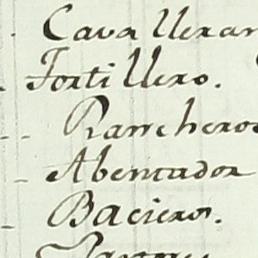 Cavalleran
Fortillero.
Rancheros
Abentador
Bacieros.